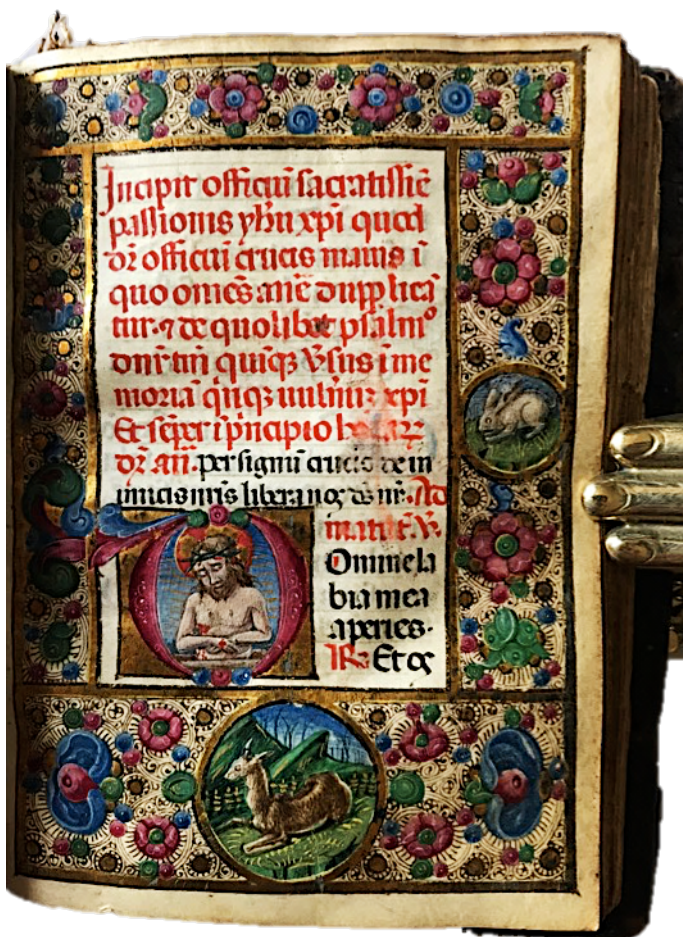 Incipit officiū sacratissīe
passionis yhū xpi quod
dr̄ officiū crucis maius ī
quo om̄es añe dupplicā
tur. ⁊ de quolibet psalm⁹
dn̄r tm̄ quīqꝫ v̄sus ī me
moriā qīqꝫ uulnuꝝ xpi
Et sēꝑ ī pͥncipio
dr̄ añ. per signū crucis de in
imicis nr̄is libera nos ds nr̄. Ad
matut̄. V̄.
Domine la
bia mea
aperies.
R̄. Et os